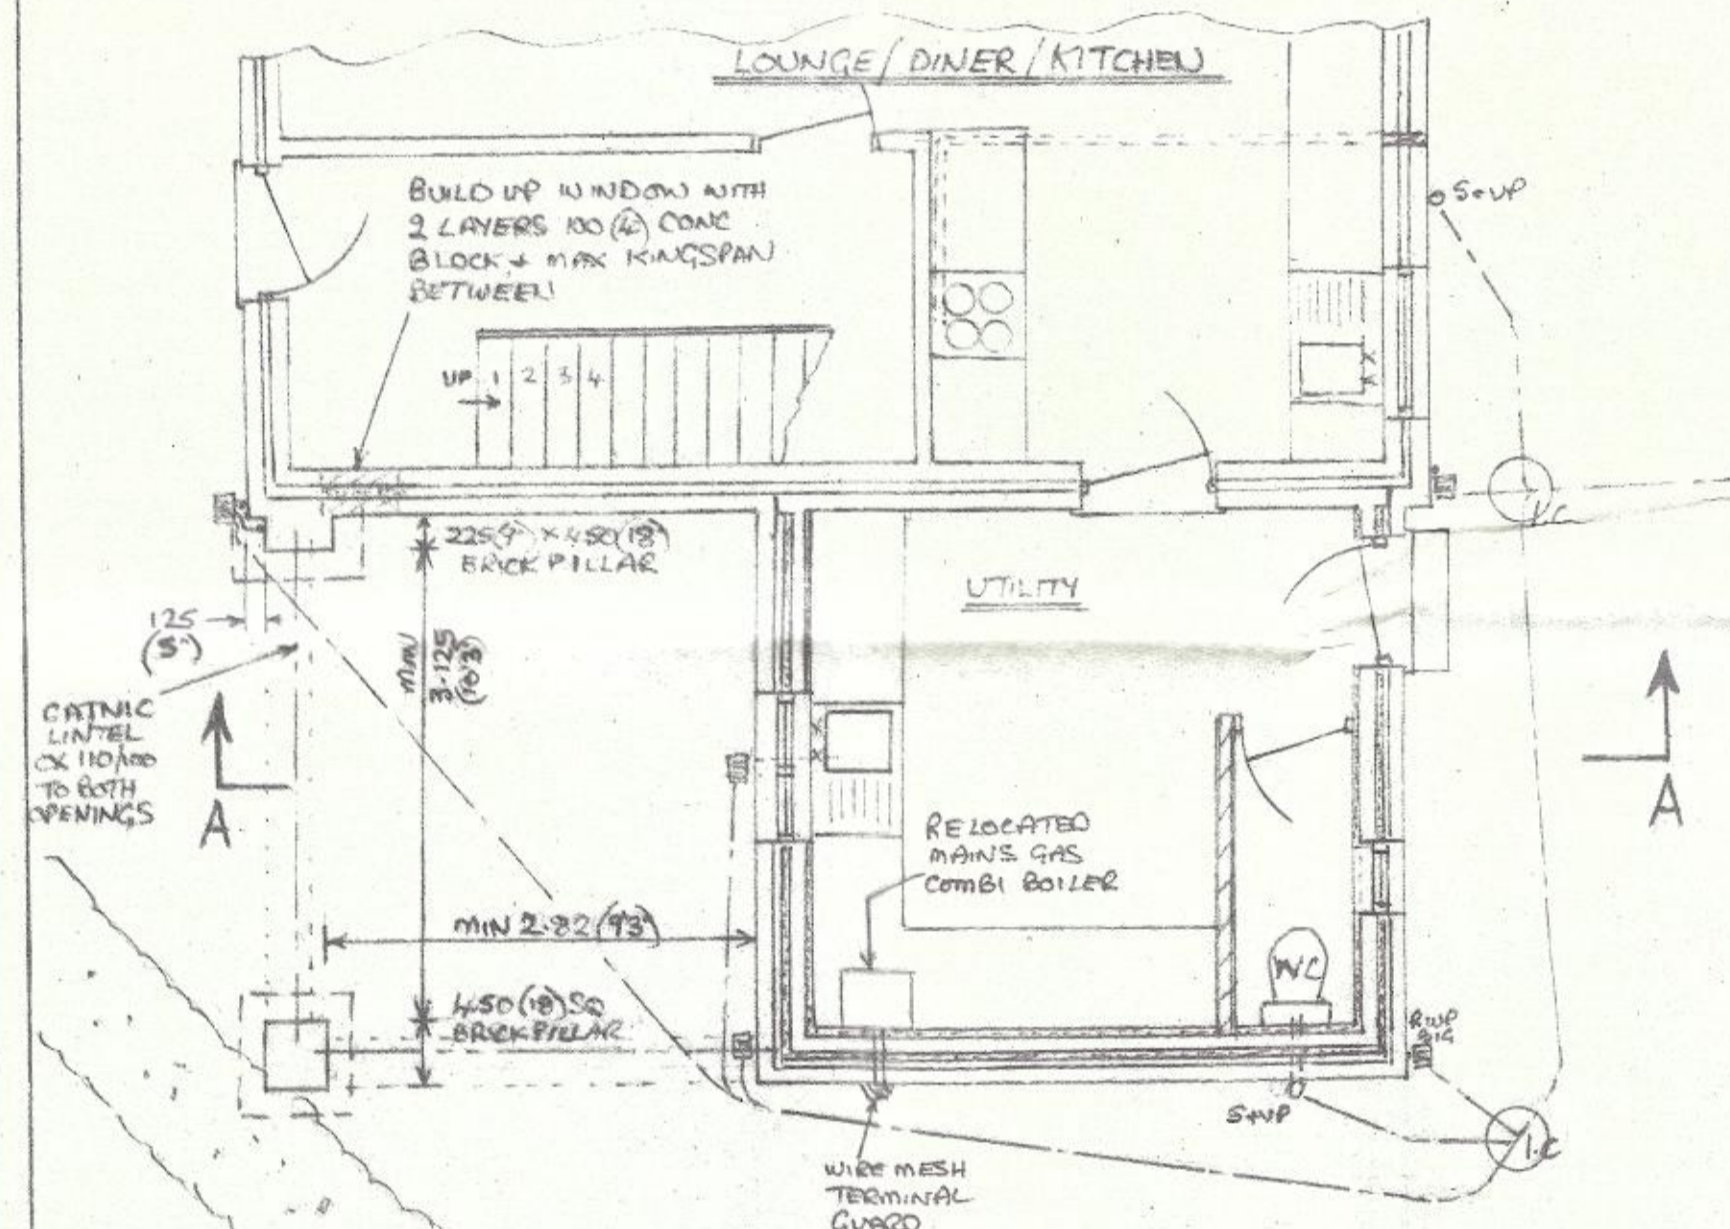 LOUNGE/DINER/KITCHEN
BUILD UP WINDOW WITH
2 LAYERS 100(4") CONC
BLOCK + MAX KINGSPAN
BETWEEN
S+VP
UP 1 2 3 4
I.C
225(9") X 450(18")
BRICK PILLAR
UTILITY
125
(5")
MIN
3.125
(10'3")
CATNIC
LINTEL
CX 110/100
TO BOTH
OPENINGS
A
A
RELOCATED
MAINS GAS
COMBI BOILER
MIN 2.82 (9'3")
WC
450(18") SQ
BRICK PILLAR
RWP
BIG
S+VP
I.C
WIRE MESH
TERMINAL
GUARD